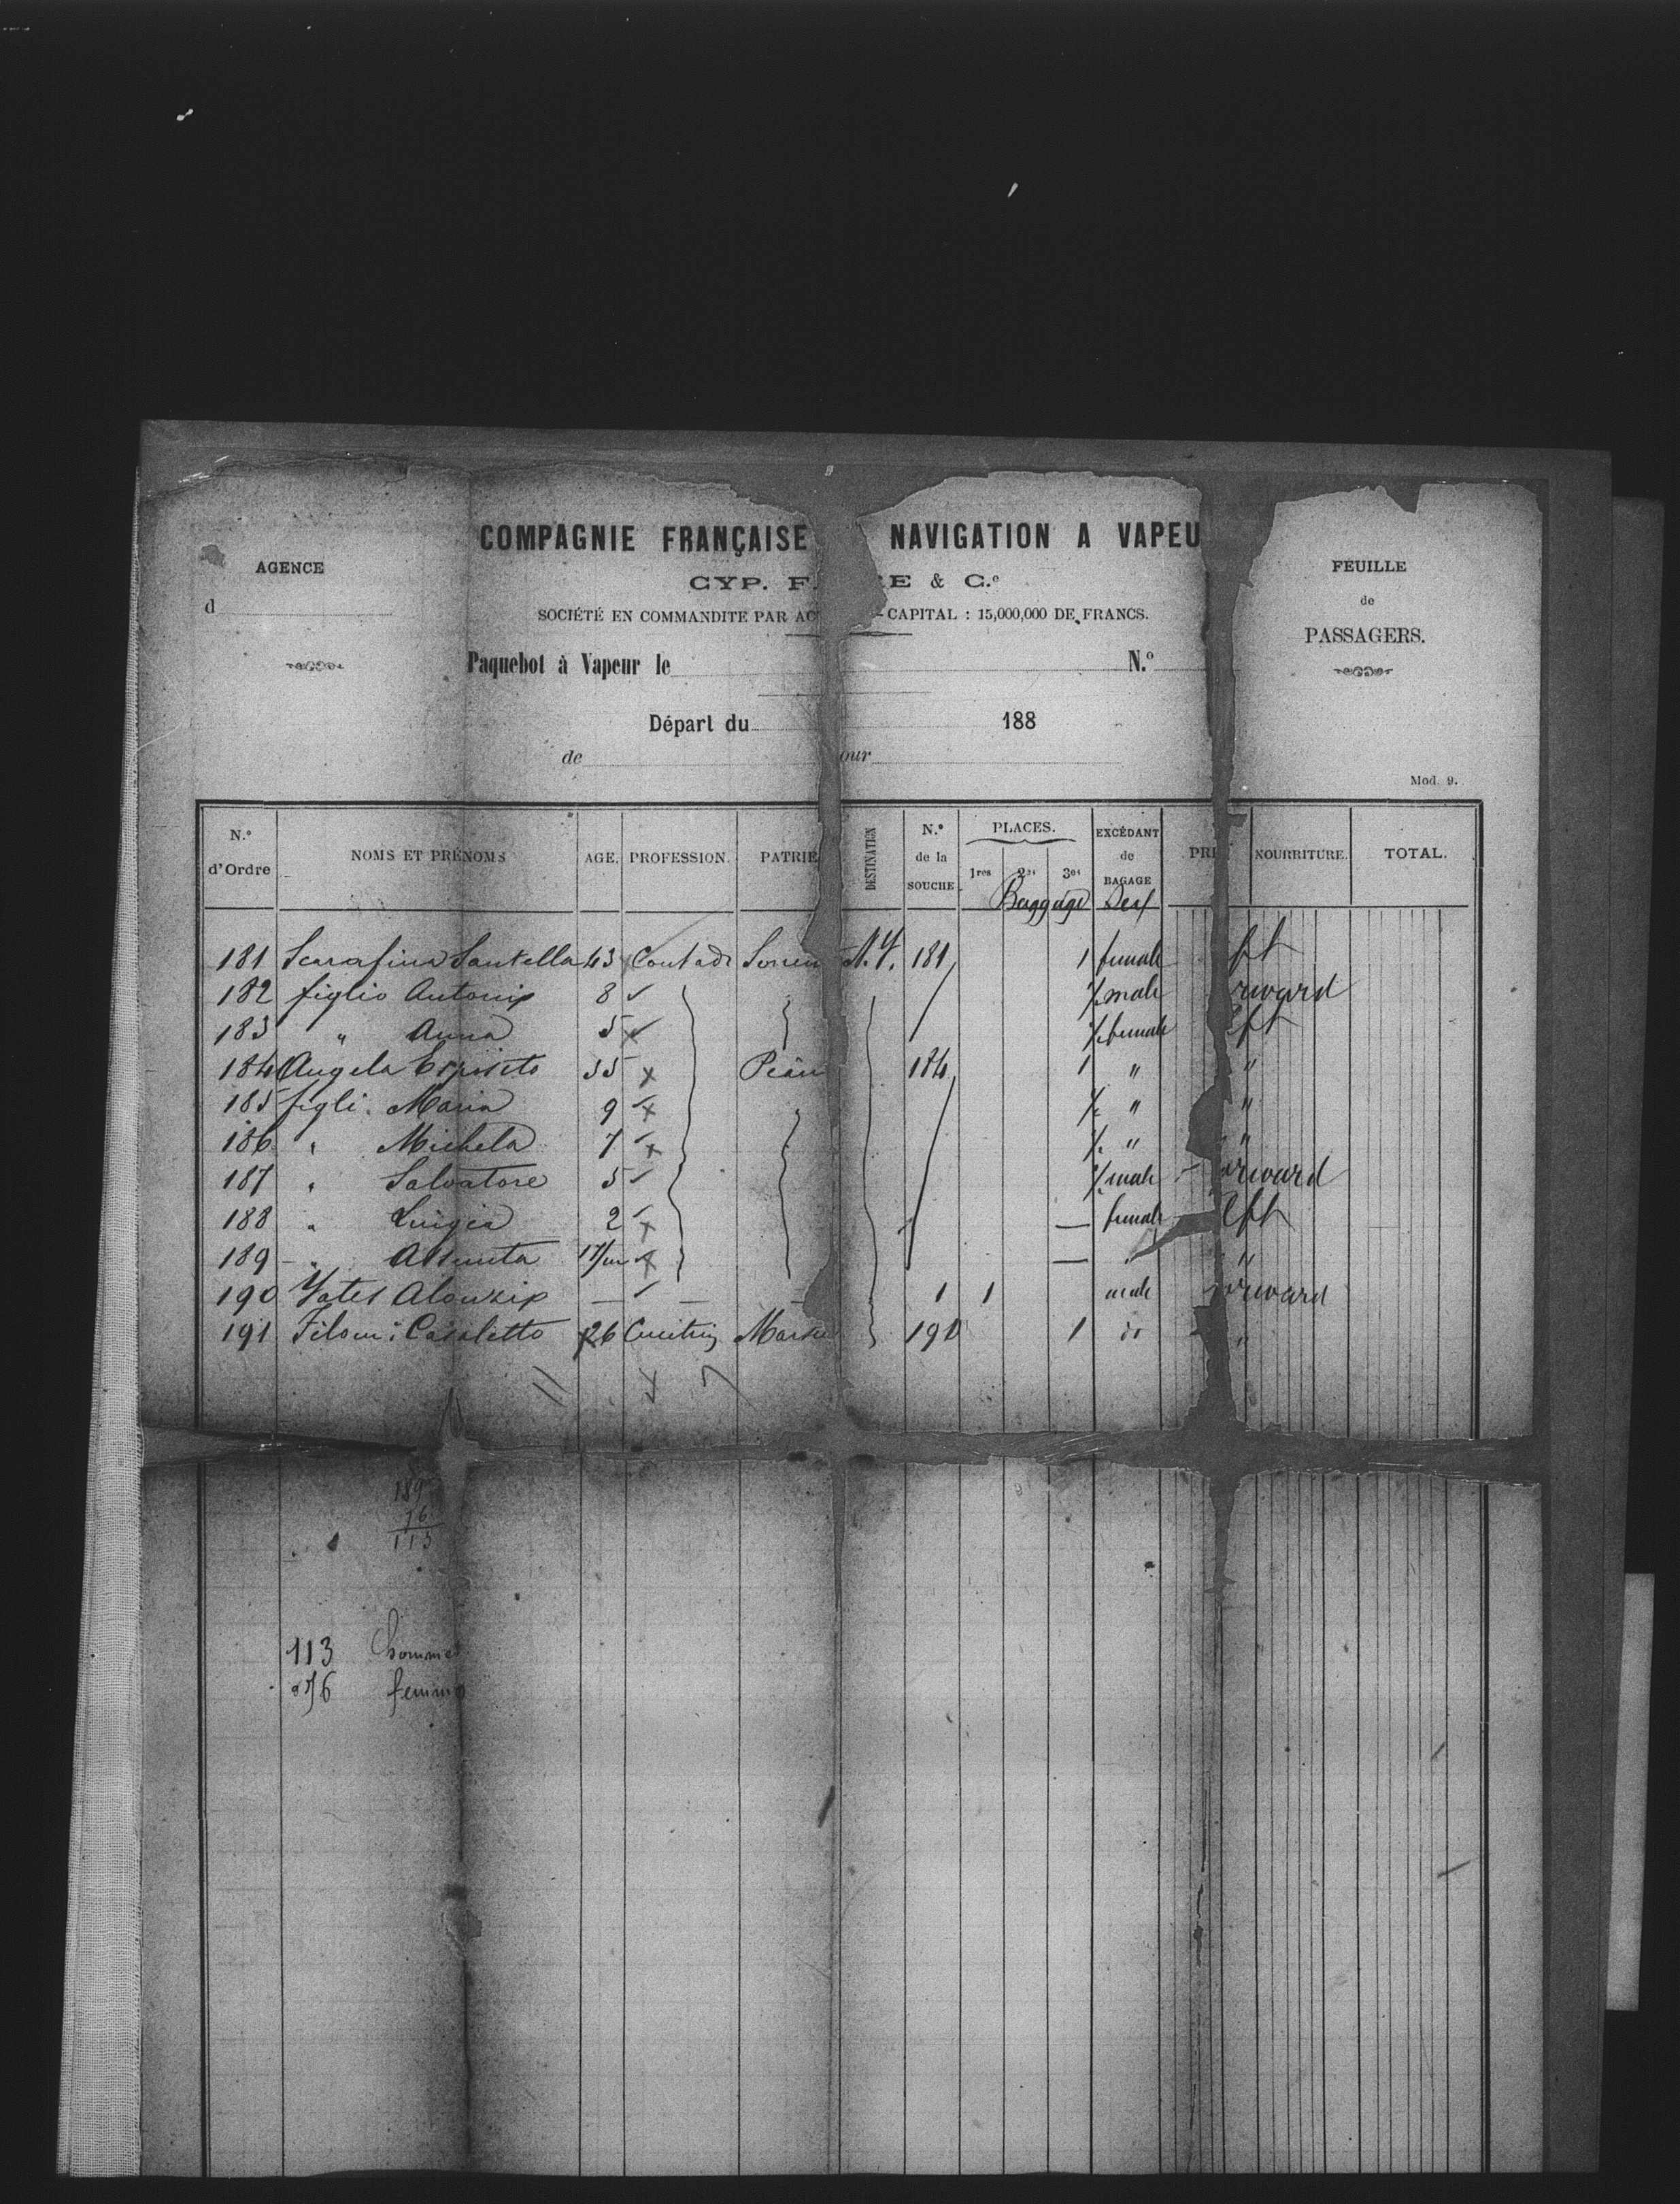 COMPAGNIE FRANÇAISE NAVIGATION A VAPEU
CYP. F RE & C.ie
SOCIÉTÉ EN COMMANDITE PAR AC - CAPITAL : 15,000,000 DE FRANCS.
AGENCE
d
FEUILLE
de
PASSAGERS.
Paquebot à Vapeur le N.o
Départ du 188
de our
Mod. 9.
N.o d'Ordre NOMS ET PRÉNOMS AGE. PROFESSION. PATRIE DESTINATION N.o de la SOUCHE PLACES. 1res 2es 3es EXCÉDANT de BAGAGE PRI NOURRITURE. TOTAL.
Baggage Sex
181 Scarafina Santella 43 Contad N.Y. 181 1 female ft
182 figlio Antonio 8 male rward
183 " Anna 5 female eft
184 Angela Esposito 35 184 1 " "
185 figli: Maria 9 " "
186 " Michela 7 " "
187 " Salvatore 5 male orward
188 " Luigia 2 — female eft
189 " Assunta 17/m — " "
190 Yates Alonzip — — 1 1 male orward
191 Filom: Casaletto 26 191 1 do "
11 4 7
189
76
113
113 hommes
76 femme